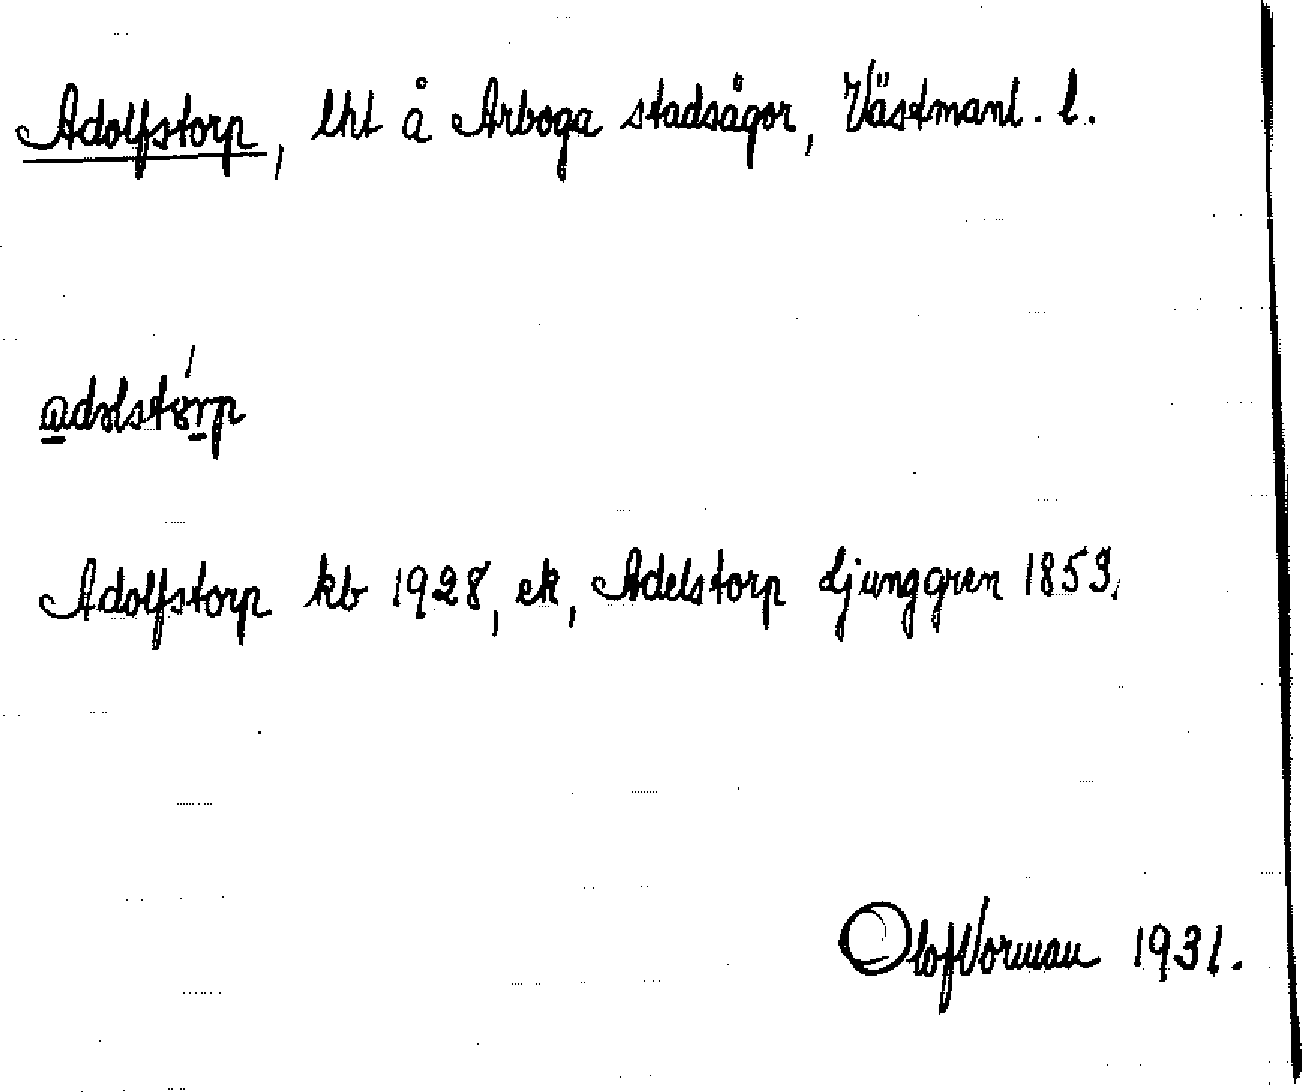 Adolfstorp, lht å Arboga stadsägor, Västmanl. l.
adolstorp
Adolfstorp kb 1928, ek, Adelstorp Ljunggren 1853,
Olof Norman 1931.